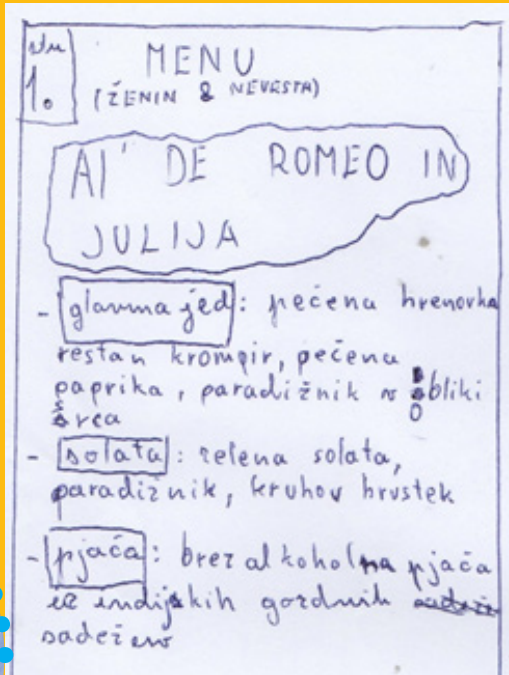 MENU
1.
(ŽENIN & NEVESTA)
AI' DE ROMEO IN
JULIJA
- glavna jed: pečena hrenovka
restan krompir, pečena
paprika, paradižnik v obliki
srca
- solata: zelena solata,
paradižnik, kruhov hrustek
- pjača: brezalkoholna pjača
iz indijskih gozdnih
sadežev